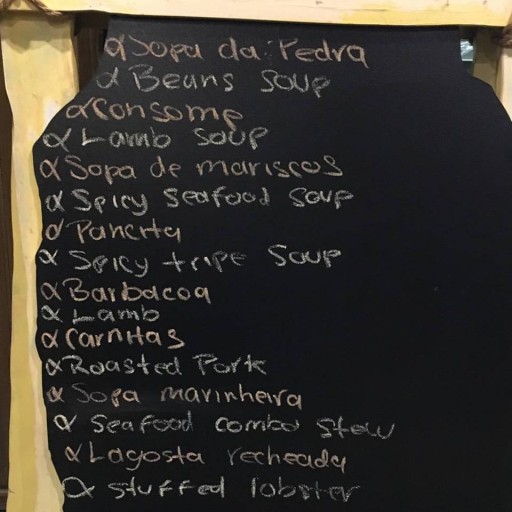 α Sopa da Pedra
α Beans soup
α Consome
α Lamb soup
α Sopa de mariscos
α Spicy seafood soup
α Pancita
α Spicy tripe soup
α Barbacoa
α Lamb
α Carnitas
α Roasted Pork
α Sopa marinheira
α Seafood combo stew
α Lagosta recheada
α Stuffed lobster